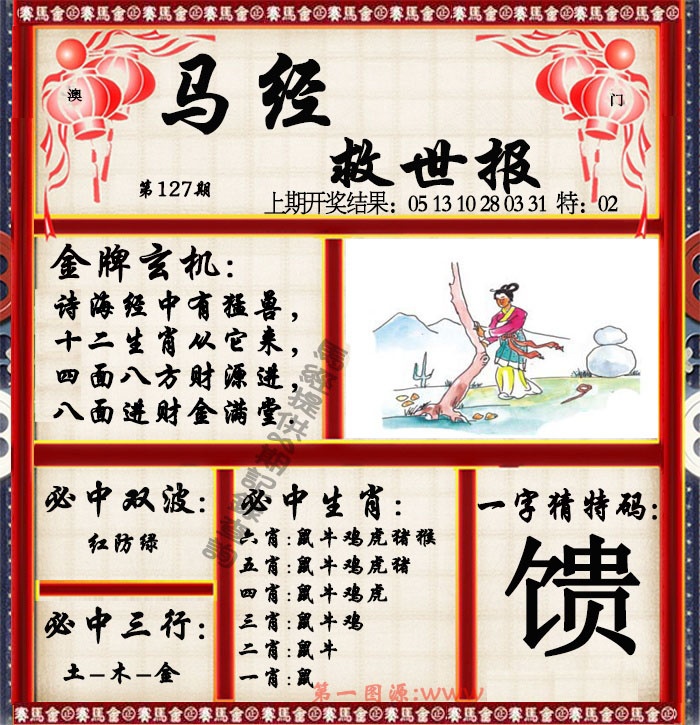 正賽馬會金正賽馬會金正賽馬會金正賽馬會金正賽馬會金
澳
门
马经
救世报
第127期
上期开奖结果：05 13 10 28 03 31 特：02
金牌玄机：
诗海经中有猛兽，
十二生肖从它来，
四面八方财源进，
八面进财金满堂.
必中双波：
红防绿
必中三行：
土-木-金
必中生肖：
六肖:鼠牛鸡虎猪猴
五肖:鼠牛鸡虎猪
四肖:鼠牛鸡虎
三肖:鼠牛鸡
二肖:鼠牛
一肖:鼠
一字猜特码：
馈
第一图源:www